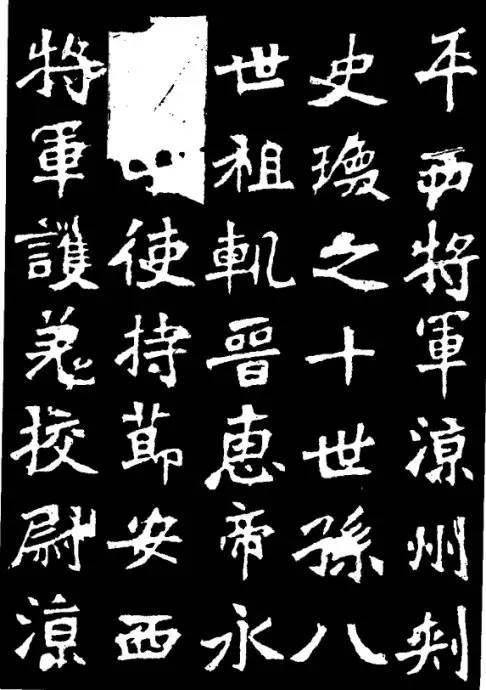 平西將軍涼州刾
史瑍之十世孫八
世祖軌晉惠帝永
使持莭安西
將軍護羌挍尉涼